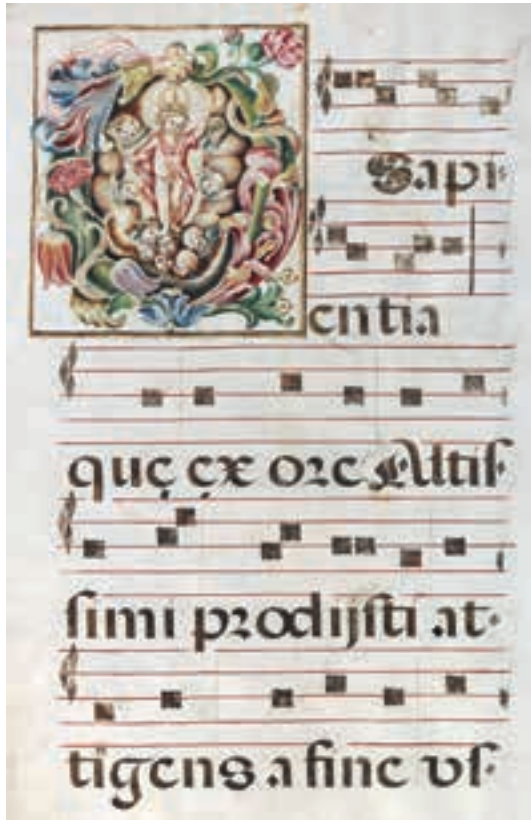 O Sapi-
entia
quę ęx ore Altiſ
ſimi prodijſti at-
tigens a fine vſ-